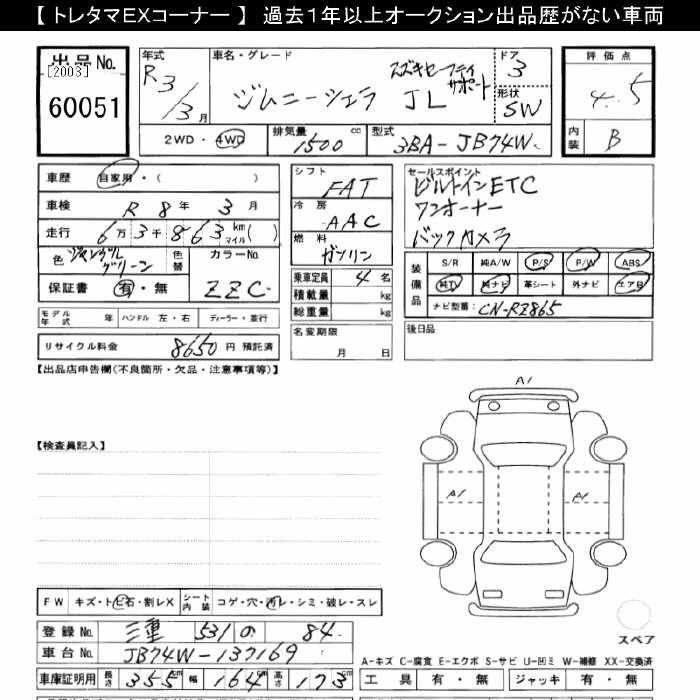 【トレタマEXコーナー】 過去1年以上オークション出品歴がない車両
出品No. [2003] 60051
年式 R3/3月
車名・グレード ジムニーシエラ JL スズキセーフティサポート
ドア 3
形状 SW
評価点 4.5
内装 B
2WD・4WD 排気量 1500cc 型式 3BA-JB74W
車歴 自家用・( )
車検 R 8年 3月
走行 6万3千863 km マイル( )
色 ジャングルグリーン 色替 カラーNo. ZZC
保証書 有・無
モデル年式 年 ハンドル 左・右 ディーラー・並行
リサイクル料金 8650円 預託済
シフト FAT
冷房 AAC
燃料 ガソリン
乗車定員 4名
積載量 kg
総重量 kg
名変期限 月 日
セールスポイント
ビルトインETC
ワンオーナー
バックカメラ
装備品 S/R 純A/W P/S P/W ABS
純TV 純ナビ 革シート 外ナビ エアB
ナビ型番: CN-RZ865
後日品
【出品店申告欄(不良箇所・欠品・注意事項等)】
【検査員記入】
A1
A1 A1
FW キズ・トビ石・割レX シート内装 コゲ・穴・汚レ・シミ・破レ・スレ
登録No. 三重 531 の 84
車台No. JB74W-137169
車庫証明用 長さ 355cm 幅 164cm 高さ 173cm
スペア
A-キズ C-腐食 E-エクボ S-サビ U-凹ミ W-補修 XX-交換済
工具 有・無 ジャッキ 有・無